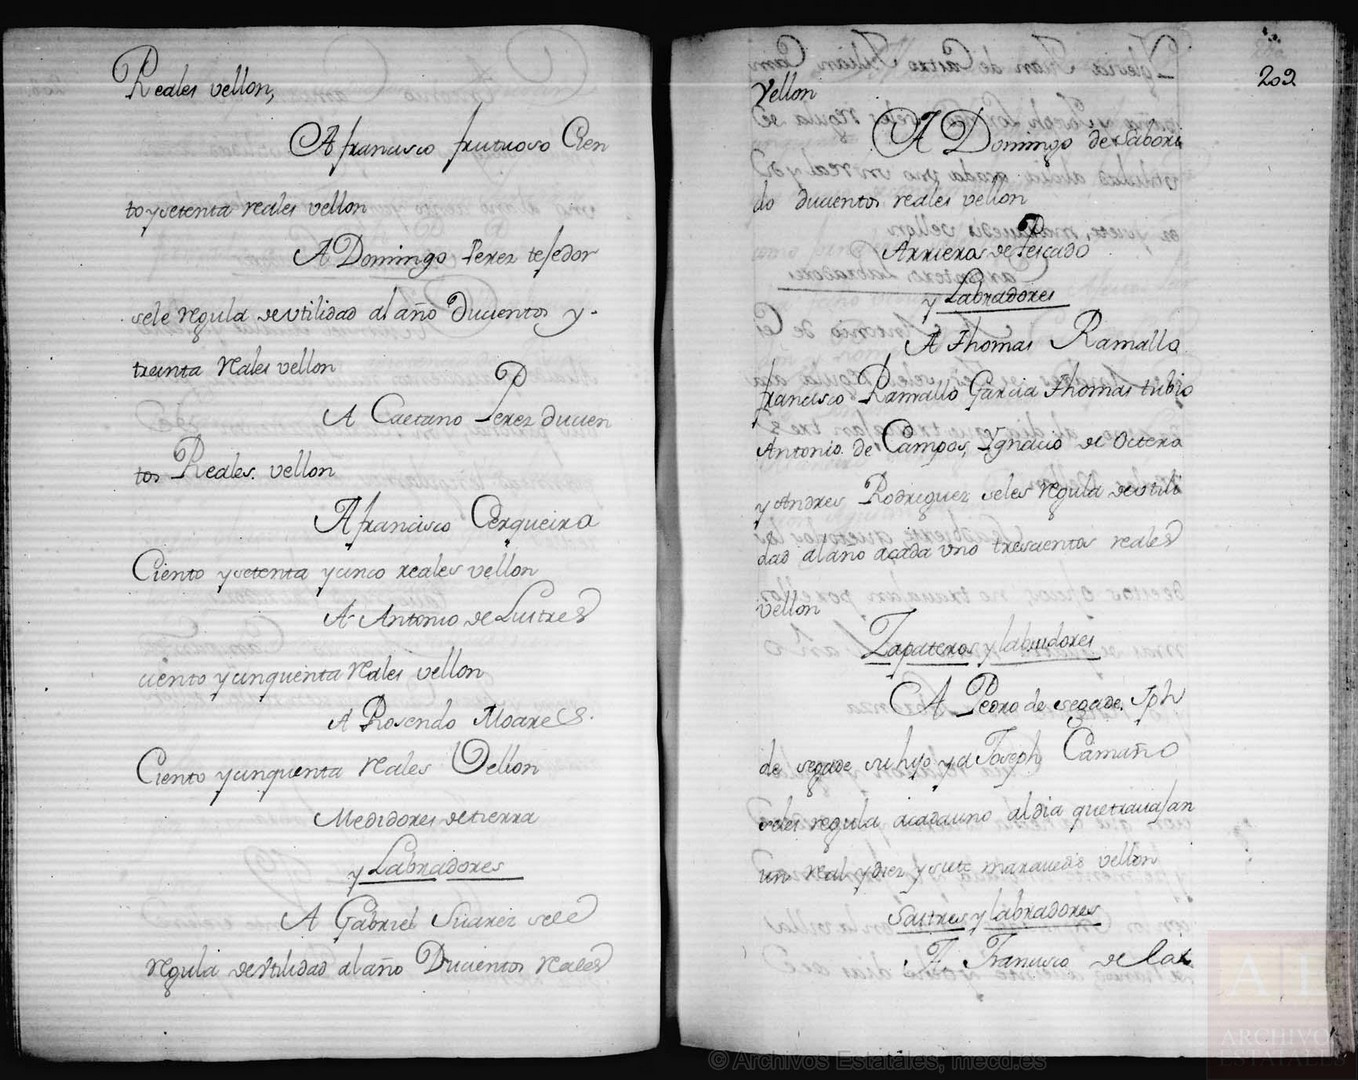 Reales vellon,
A francisco frutuoso Cien
to y setenta reales vellon
A Domingo Perez tesedor
sele regula de utilidad al año Ducientos y-
treinta Reales vellon
A Caetano Perez ducien
tos Reales. vellon
A francisco Cerqueira
Ciento y setenta y cinco reales vellon
A Antonio de Lustres
ciento y cinquenta Reales vellon
A Rosendo Moares.
Ciento y cinquenta Reales Vellon
Medidores de tierra
y Labradores
A Gabriel Suarez sele
regula de utilidad al año Ducientos Reales
202
Vellon
A Domingo de Sabori
do ducientos reales vellon
Arrieros de Pescado
y Labradores
A Thomas Ramallo
francisco Ramallo Garcia Thomas tubio
Antonio de Campos, Ygnacio de Outero
y Andres Rodriguez seles regula de utili
dad al ano acada uno trescientos reales
vellon
Zapateros y labradores
A Pedro de segade, Jph
de segade su hijo y a Joseph Camaño
seles regula acadauno al dia que travajan
un real y diez y siete maravedis vellon
Sastres y labradores
A Francisco de
© Archivos Estatales, mecd.es
ARCHIVOS
ESTATALES